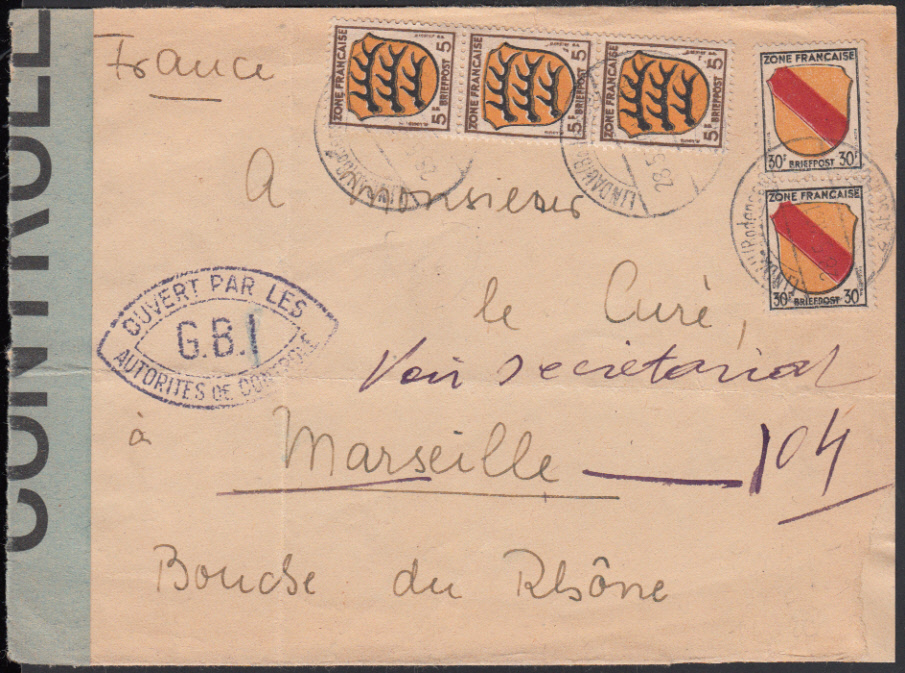 CONTROLE
France
ZONE FRANÇAISE
5 F BRIEFPOST 5
ZONE FRANÇAISE
5 F BRIEFPOST 5
ZONE FRANÇAISE
5 F BRIEFPOST 5
ZONE FRANÇAISE
30F BRIEFPOST 30F
ZONE FRANÇAISE
30F BRIEFPOST 30F
LINDAU (Bodensee)
A Monsieur
le Curé,
OUVERT PAR LES
G.B.I
AUTORITÉS DE CONTRÔLE
Voir secrétariat
à
Marseille 104
Bouche du Rhône